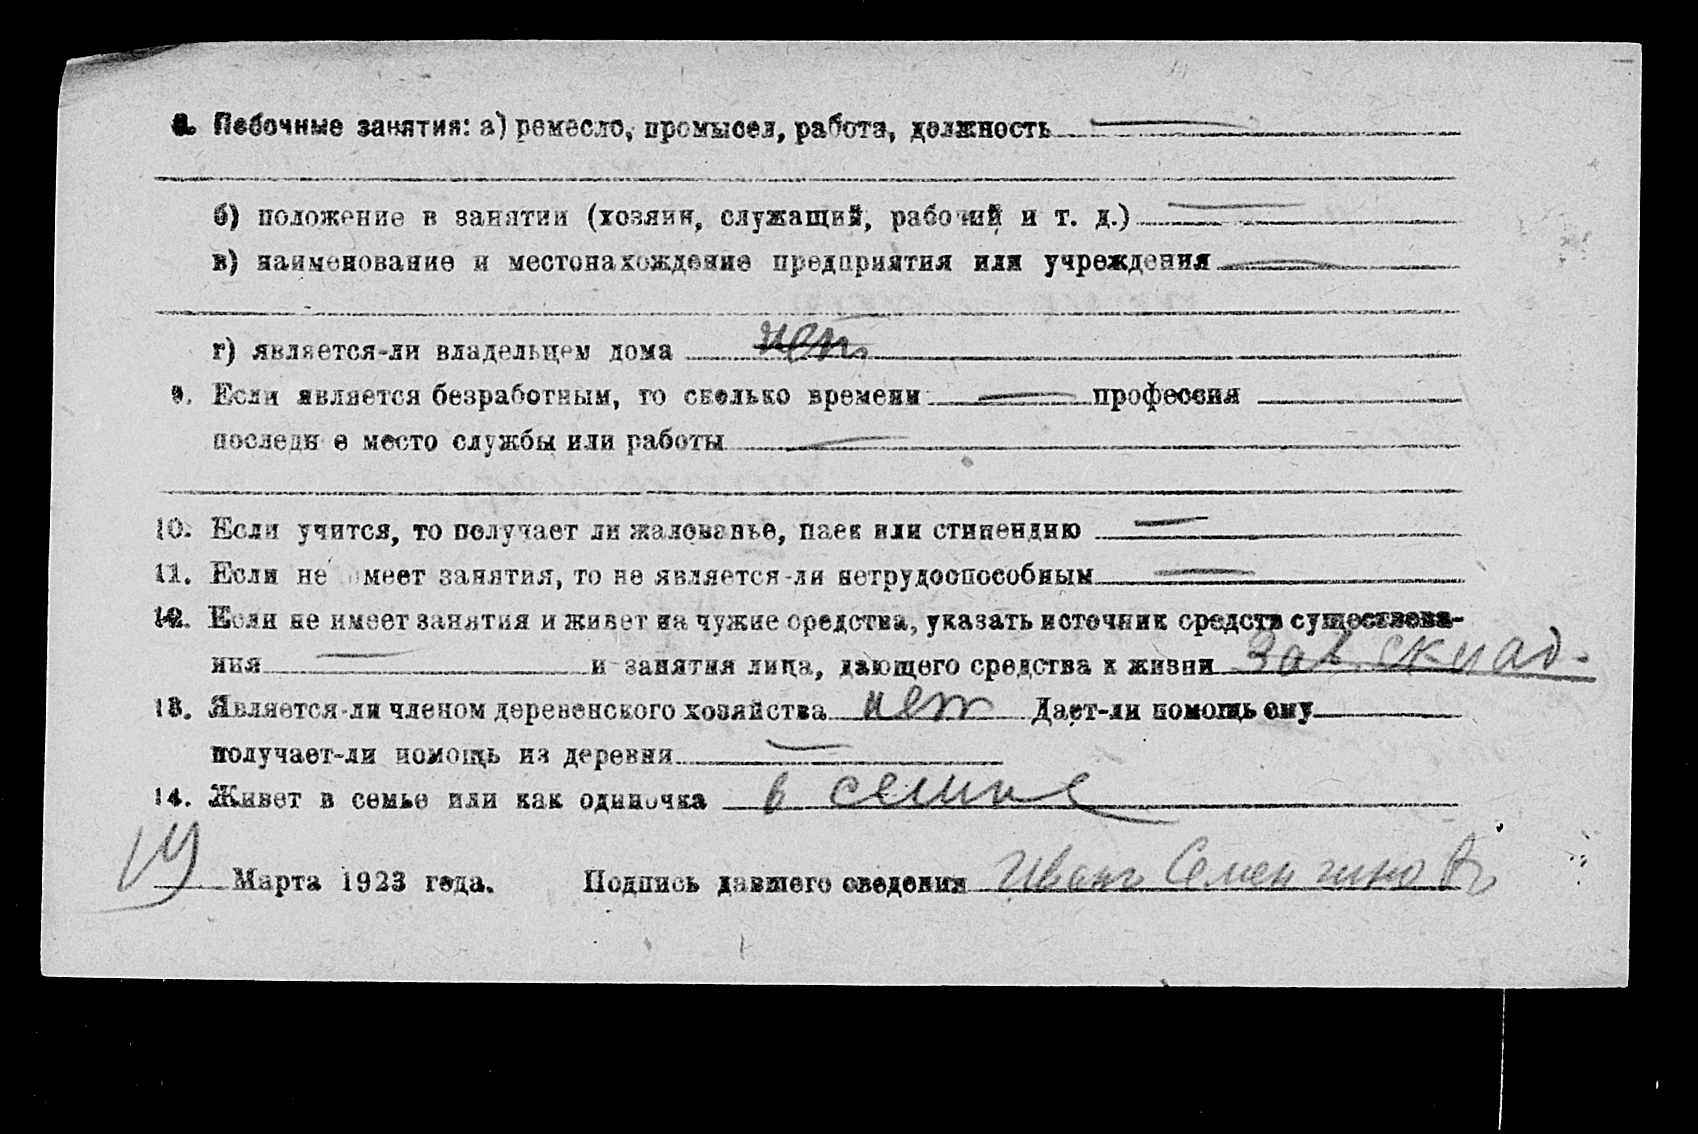 8. Побочные занятия: а) ремесло, промысел, работа, должность —
б) положение в занятии (хозяин, служащий, рабочий и т. д.) —
в) наименование и местонахождение предприятия или учреждения —
г) является-ли владельцем дома нет
9. Если является безработным, то сколько времени — профессия
последн е место службы или работы —
10. Если учится, то получает ли жалованье, паек или стипендию —
11. Если не имеет занятия, то не является-ли нетрудоспособным —
12. Если не имеет занятия и живет на чужие средства, указать источник средств существова-
ния — и занятия лица, дающего средства к жизни Зав. склад.
13. Является-ли членом деревенского хозяйства нет Дает-ли помощь ему
получает-ли помощь из деревни —
14. Живет в семье или как одиночка в семье
Марта 1923 года. Подпись давшего сведения Иван